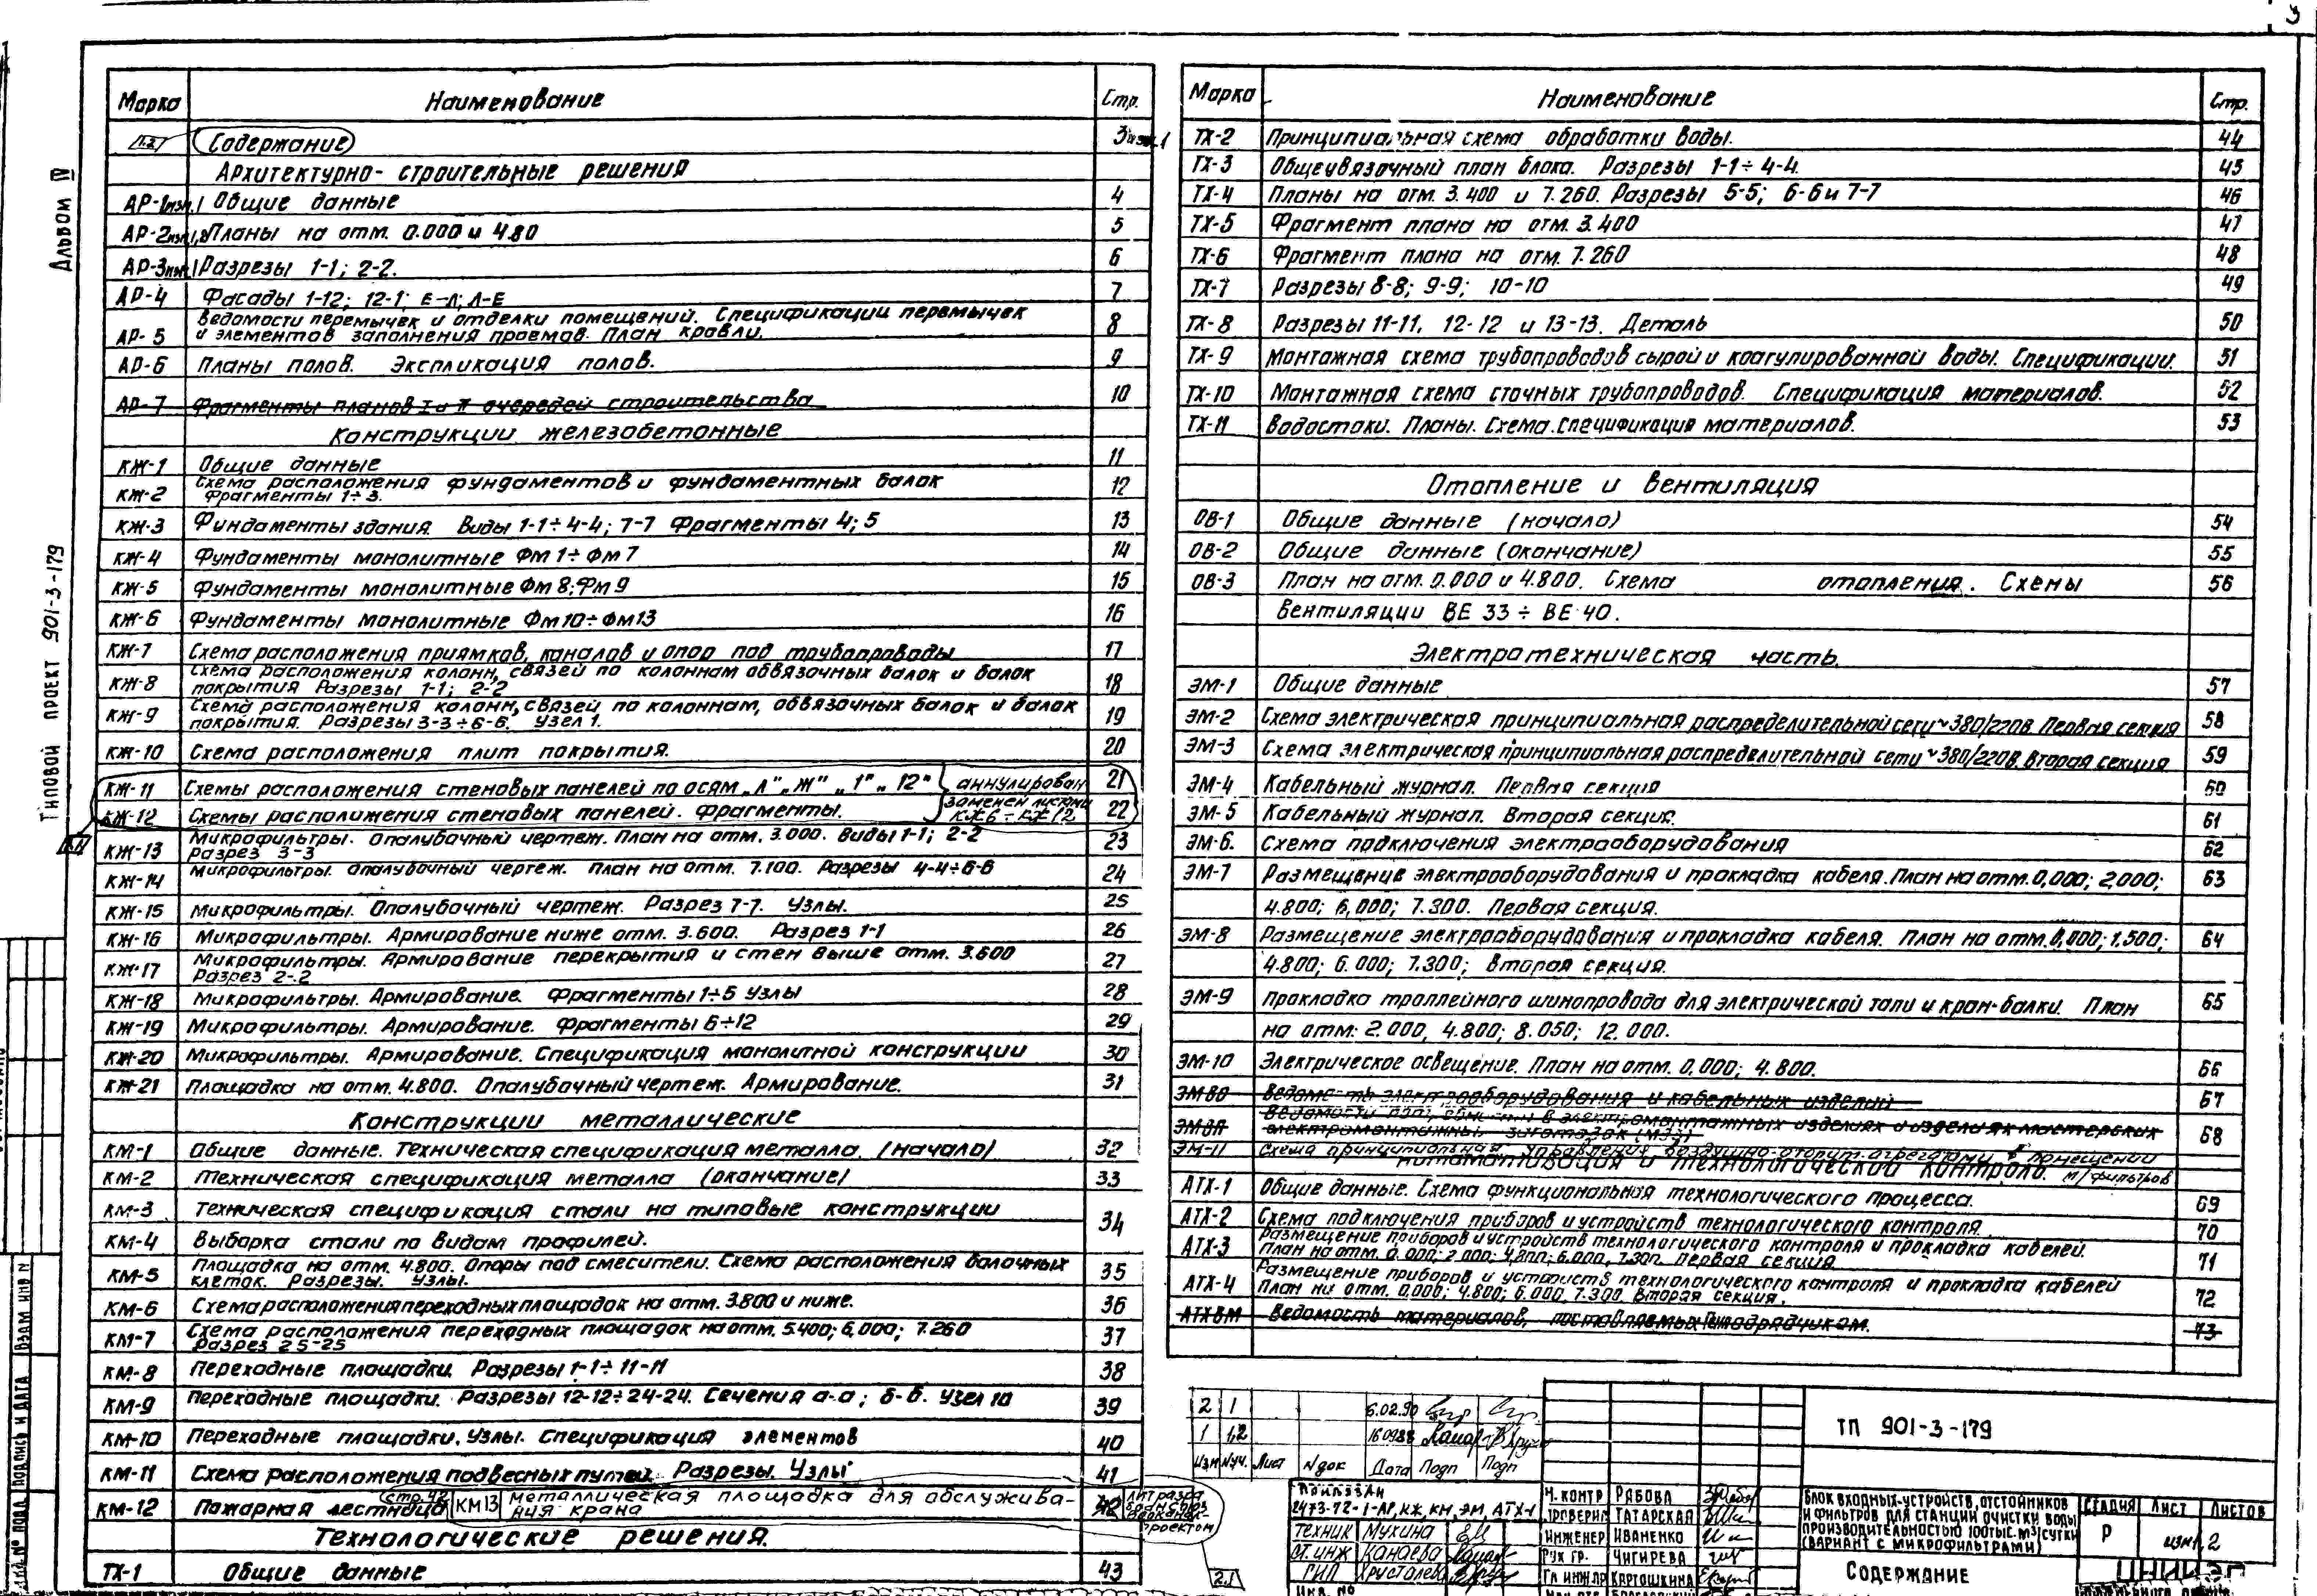 3
Альбом IV
Типовой проект 901-3-179
Марка Наименование Стр.
Содержание 3 изм.1
Архитектурно-строительные решения
АР-1 изм.1 Общие данные 4
АР-2 изм.1,2 Планы на отм. 0.000 и 4.80 5
АР-3 изм.1 Разрезы 1-1; 2-2. 6
АР-4 Фасады 1-12; 12-1; Е-Л; Л-Е 7
АР-5 Ведомости перемычек и отделки помещений. Спецификации перемычек
и элементов заполнения проемов. План кровли. 8
АР-6 Планы полов. Экспликация полов. 9
АР-7 Фрагменты планов I и II очередей строительства 10
Конструкции железобетонные
КЖ-1 Общие данные 11
КЖ-2 Схема расположения фундаментов и фундаментных балок
Фрагменты 1÷3. 12
КЖ-3 Фундаменты здания. Виды 1-1÷4-4; 7-7 Фрагменты 4; 5 13
КЖ-4 Фундаменты монолитные Фм 1÷Фм 7 14
КЖ-5 Фундаменты монолитные Фм 8; Фм 9 15
КЖ-6 Фундаменты монолитные Фм10÷Фм13 16
КЖ-7 Схема расположения приямков, каналов и опор под трубопроводы 17
КЖ-8 Схема расположения колонн, связей по колоннам обвязочных балок и балок
покрытия Разрезы 1-1; 2-2 18
КЖ-9 Схема расположения колонн, связей по колоннам, обвязочных балок и балок
покрытия. Разрезы 3-3÷6-6. Узел 1. 19
КЖ-10 Схема расположения плит покрытия. 20
КЖ-11 Схемы расположения стеновых панелей по осям „Л" „Ж" „1" „12" аннулирован 21
КЖ-12 Схемы расположения стеновых панелей. Фрагменты. заменен листами КЖ6-КЖ12 22
КЖ-13 Микрофильтры. Опалубочный чертеж. План на отм. 3.000. Виды 1-1; 2-2
Разрез 3-3 23
КЖ-14 Микрофильтры. Опалубочный чертеж. План на отм. 7.100. Разрезы 4-4÷6-6 24
КЖ-15 Микрофильтры. Опалубочный чертеж. Разрез 7-7. Узлы. 25
КЖ-16 Микрофильтры. Армирование ниже отм. 3.600. Разрез 1-1 26
КЖ-17 Микрофильтры. Армирование перекрытия и стен выше отм. 3.600
Разрез 2-2 27
КЖ-18 Микрофильтры. Армирование. Фрагменты 1÷5 Узлы 28
КЖ-19 Микрофильтры. Армирование. Фрагменты 6÷12 29
КЖ-20 Микрофильтры. Армирование. Спецификация монолитной конструкции 30
КЖ-21 Площадка на отм. 4.800. Опалубочный чертеж. Армирование. 31
Конструкции металлические
КМ-1 Общие данные. Техническая спецификация металла. (начало) 32
КМ-2 Техническая спецификация металла (окончание) 33
КМ-3 Техническая спецификация стали на типовые конструкции
34
КМ-4 Выборка стали по видам профилей.
КМ-5 Площадка на отм. 4.800. Опоры под смесители. Схема расположения балочных
клеток. Разрезы. Узлы. 35
КМ-6 Схема расположения переходных площадок на отм. 3.800 и ниже. 36
КМ-7 Схема расположения переходных площадок на отм. 5.400; 6,000; 7.260
Разрез 25-25 37
КМ-8 Переходные площадки. Разрезы 1-1÷11-11 38
КМ-9 Переходные площадки. Разрезы 12-12÷24-24. Сечения а-а; б-б. Узел 10 39
КМ-10 Переходные площадки. Узлы. Спецификация элементов 40
КМ-11 Схема расположения подвесных путей. Разрезы. Узлы 41
КМ-12 Пожарная лестница стр.42 КМ13 Металлическая площадка для обслужива-
ния крана 42
Технологические решения.
ТХ-1 Общие данные 43
Марка Наименование Стр.
ТХ-2 Принципиальная схема обработки воды. 44
ТХ-3 Общеувязочный план блока. Разрезы 1-1÷4-4. 45
ТХ-4 Планы на отм. 3.400 и 7.260. Разрезы 5-5; 6-6 и 7-7 46
ТХ-5 Фрагмент плана на отм. 3.400 47
ТХ-6 Фрагмент плана на отм. 7.260 48
ТХ-7 Разрезы 8-8; 9-9; 10-10 49
ТХ-8 Разрезы 11-11. 12-12 и 13-13. Деталь 50
ТХ-9 Монтажная схема трубопроводов сырой и коагулированной воды. Спецификации. 51
ТХ-10 Монтажная схема сточных трубопроводов. Спецификация материалов. 52
ТХ-11 Водостоки. Планы. Схема. Спецификация материалов. 53
Отопление и вентиляция
ОВ-1 Общие данные (начало) 54
ОВ-2 Общие данные (окончание) 55
ОВ-3 План на отм. 0.000 и 4.800. Схема отопления. Схемы 56
вентиляции ВЕ 33÷ВЕ 40.
Электротехническая часть.
ЭМ-1 Общие данные 57
ЭМ-2 Схема электрическая принципиальная распределительной сети ~380/220в. Первая секция 58
ЭМ-3 Схема электрическая принципиальная распределительной сети ~380/220в. Вторая секция 59
ЭМ-4 Кабельный журнал. Первая секция 60
ЭМ-5 Кабельный журнал. Вторая секция. 61
ЭМ-6. Схема подключения электрооборудования 62
ЭМ-7 Размещение электрооборудования и прокладка кабеля. План на отм. 0,000; 2,000; 63
4.800; 6,000; 7.300. Первая секция.
ЭМ-8 Размещение электрооборудования и прокладка кабеля. План на отм. 0,000; 1.500; 64
4.800; 6.000; 7.300; Вторая секция.
ЭМ-9 Прокладка троллейного шинопровода для электрической тали и кран-балки. План 65
на отм: 2.000, 4.800; 8.050; 12.000.
ЭМ-10 Электрическое освещение. План на отм. 0,000; 4.800. 66
ЭМ ВО Ведомость электрооборудования и кабельных изделий 67
изделиях и изделиях мастерских
электромонтажных заготовок (МЭЗ) 68
ЭМ-11 Схема принципиальная управления воздушно-отопит. агрегатами в помещении
м/фильтров
Автоматизация и технологический контроль.
АТХ-1 Общие данные. Схема функциональная технологического процесса. 69
АТХ-2 Схема подключения приборов и устройств технологического контроля. 70
АТХ-3 Размещение приборов и устройств технологического контроля и прокладка кабелей.
План на отм. 0.000; 2.000; 4,800; 6.000, 7.300. Первая секция 71
АТХ-4 Размещение приборов и устройств технологического контроля и прокладка кабелей
План на отм. 0,000; 4.800; 6.000, 7.300 Вторая секция. 72
АТХ ВМ Ведомость материалов, поставляемых Генподрядчиком. 73
2 1 6.02.90
1 1,2 16.09.88
Изм. №уч. Лист N док Дата Подп Подп
Привязан
2473-72-1-АР, КЖ, КМ, ЭМ, АТХ-1
Техник Мухина
Ст. инж Канаева
ГИП Христалев
Инв. №
Н. контр Рябова
Проверил Татарская
Инженер Иваненко
Рук гр. Чигирева
Гл инж пр Картошкина
ТП 901-3-179
Блок входных устройств, отстойников
и фильтров для станции очистки воды
производительностью 100тыс. м³/сутки
(вариант с микрофильтрами)
Стадия Лист Листов
Р изм1,2
Содержание
ЦНИИЭП
Инв. № подл Подпись и дата Взам инв N